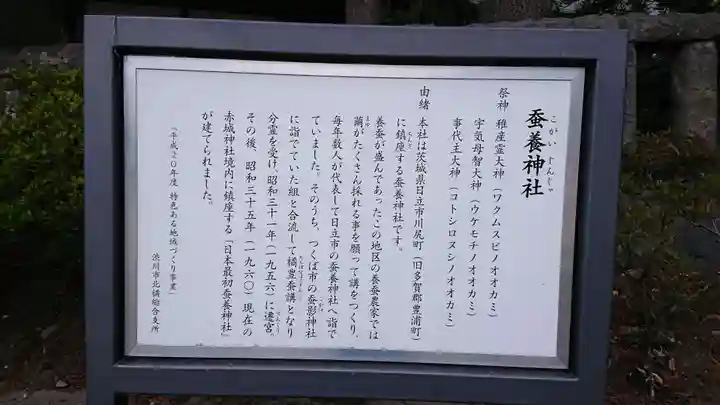 蚕養神社
こがいじんじゃ
祭神 稚産霊大神（ワクムスビノオオカミ）
宇気母智大神（ウケモチノオオカミ）
事代主大神（コトシロヌシノオオカミ）
由緒 本社は茨城県日立市川尻町（旧多賀郡豊浦町）
に鎮座する蚕養神社です。
養蚕が盛んであったこの地区の養蚕農家では
繭がたくさん採れる事を願って講をつくり、
毎年数人が代表して日立市の蚕養神社へ詣で
ていました。そのうち、つくば市の蚕影神社
に詣でていた組と合流して橘豊蚕講となり
分霊を受け、昭和三十一年（一九五六）に遷宮。
その後、昭和三十五年（一九六〇）現在の
赤城神社境内に鎮座する「日本最初蚕養神社」
が建てられました。
「平成２０年度 特色ある地域づくり事業」
渋川市北橘総合支所